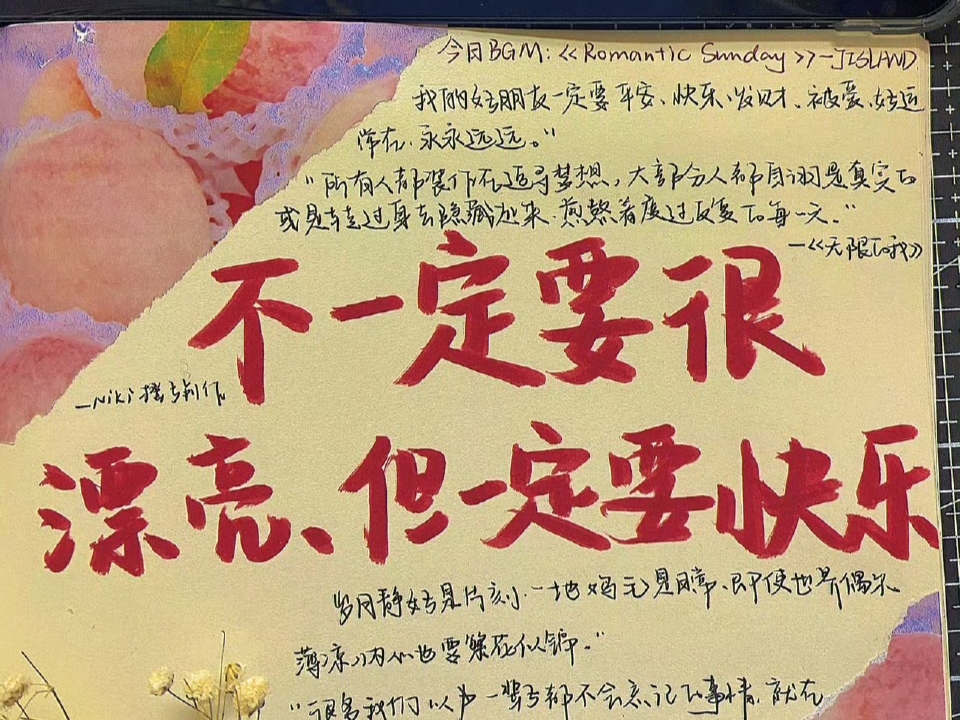 今日BGM:<<Romantic Sunday>>-JISLAND
我的好朋友一定要平安、快乐、发财、被爱、好运
常在、永永远远。”
“所有人都装作不追寻梦想,大部分人都自诩是真实的
或是走过身去隐藏起来.煎熬着度过反复的每一天。”
—《无限的我》
不一定要很
—Niki 摇 制作
漂亮、但一定要快乐
岁月静好是片刻.一地鸡毛是日常、即使世界偶尔
薄凉.内心也要繁花似锦。”
“很多我们以为一辈子都不会忘记的事情.就在